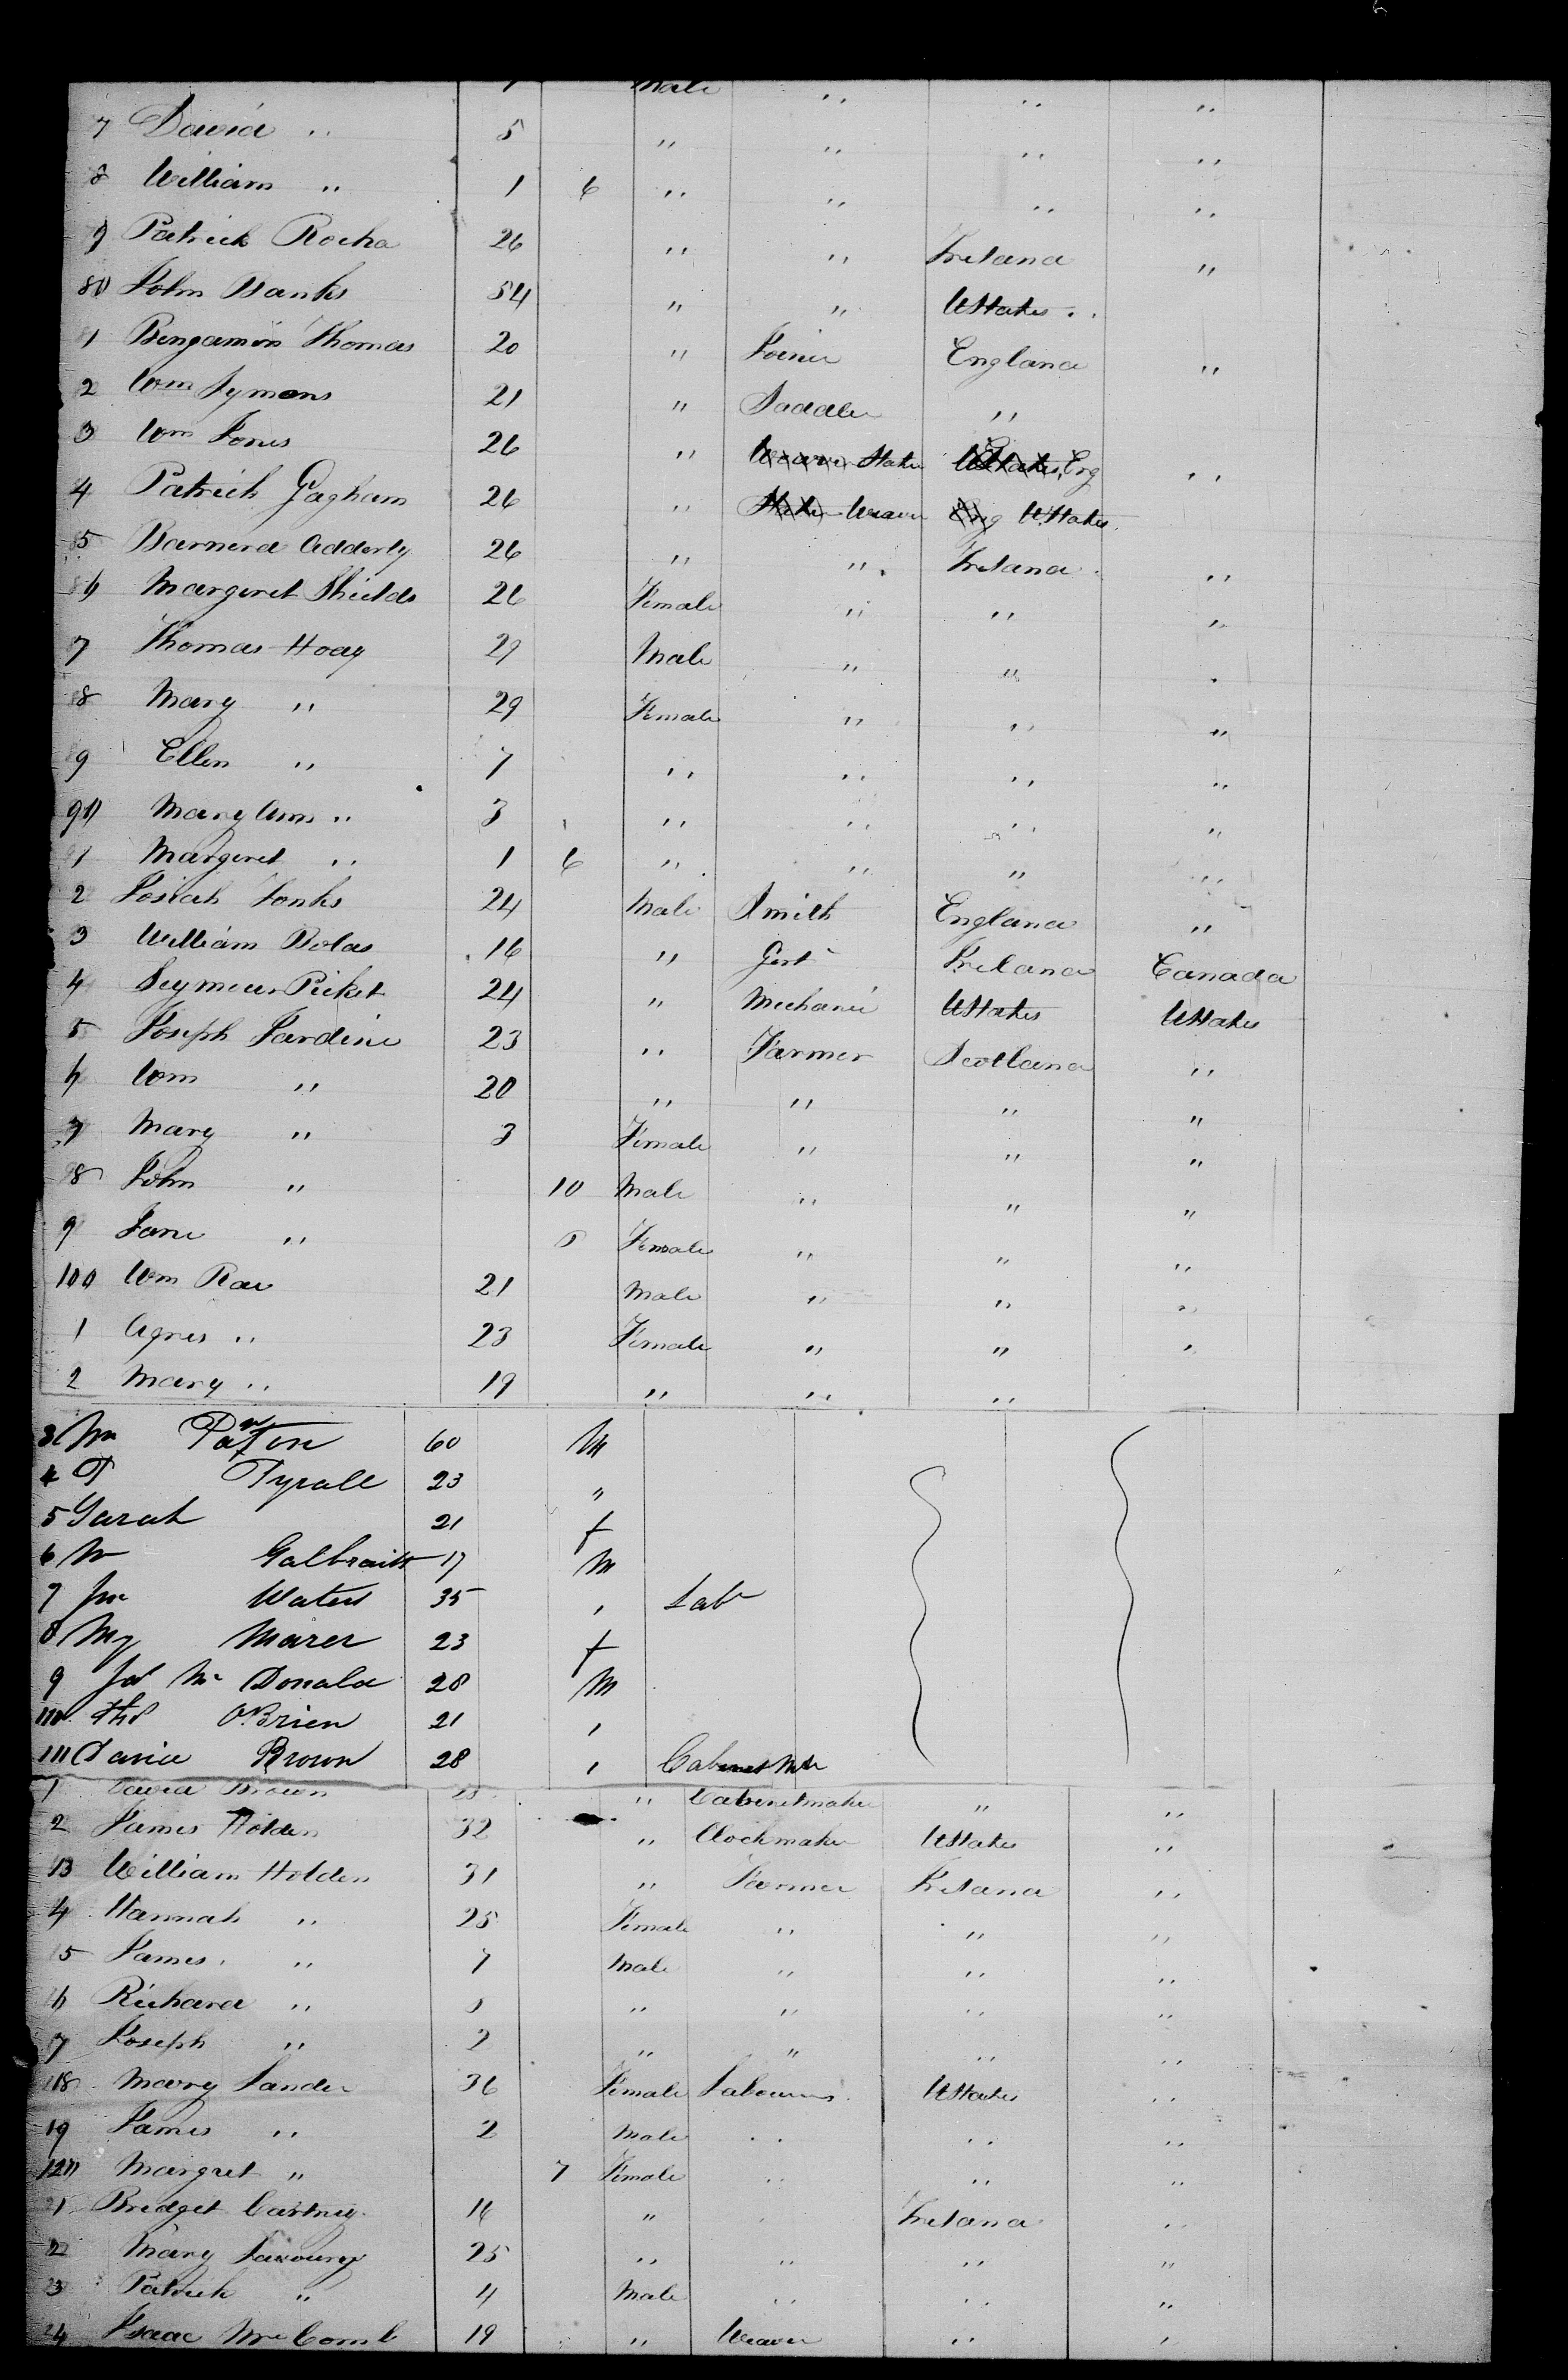 Male " " "
7 David " 5 " " " "
8 William " 1 6 " " " "
9 Patrick Rocha 26 " " Ireland "
80 John Banks 54 " " UStates "
81 Bengamin Thomas 20 " Joiner England "
2 Wm Symons 21 " Saddler "
3 Wm Jones 26 " Weaver Slater UStates Eng "
4 Patrick Gagham 26 " Slater Weaver Eng UStates
85 Barnerd Adderly 26 " " Ireland "
86 Margeret Shields 26 Female " " "
7 Thomas Hoey 29 Male " " "
88 Mary " 29 Female " " "
89 Ellen " 7 " " " "
90 Mary Ann " 3 " " " "
91 Margeret " 1 6 " " " "
2 Josiah Tonks 24 Male Smith England "
3 William Bolas 16 " Gent Ireland Canada
4 Seymour Picket 24 " Mechanic UStates UStates
5 Joseph Jardine 23 " Farmer Scotland "
6 Wm " 20 " " " "
7 Mary " 3 Female " " "
98 John " 10 Male " " "
9 Jane " Female " " "
100 Wm Rae 21 Male " " "
1 Agnes " 23 Female " " "
2 Mary " 19 " " "
3 60 M
4 T Tyrall 23 "
5 Sarah 21 f
6 W Galbraith 17 M
7 Jno Waters 35 " Labr
8 My Marer 23 f
9 Jas Mc Donald 28 M
110 Ths O'Brien 21 "
111 David Brown 28 " Cabinet Mkr
1 David Brown 28 " Cabinetmaker " "
2 James Holden 32 " Clockmaker UStates "
13 William Holden 31 " Farmer Ireland "
4 Hannah " 25 Female " " "
15 James " 7 Male " " "
16 Richard " 5 " " " "
7 Joseph " 2 " " " "
118 Mary Sander 36 Female Labourers UStates "
19 James " 2 Male " " "
120 Margret " 7 Female " " "
21 Bridget Cartney 16 " " Ireland "
22 Mary Savoury 25 " " " "
23 Patrick " 4 Male " " "
24 Isaac McComb 19 " Weaver " "